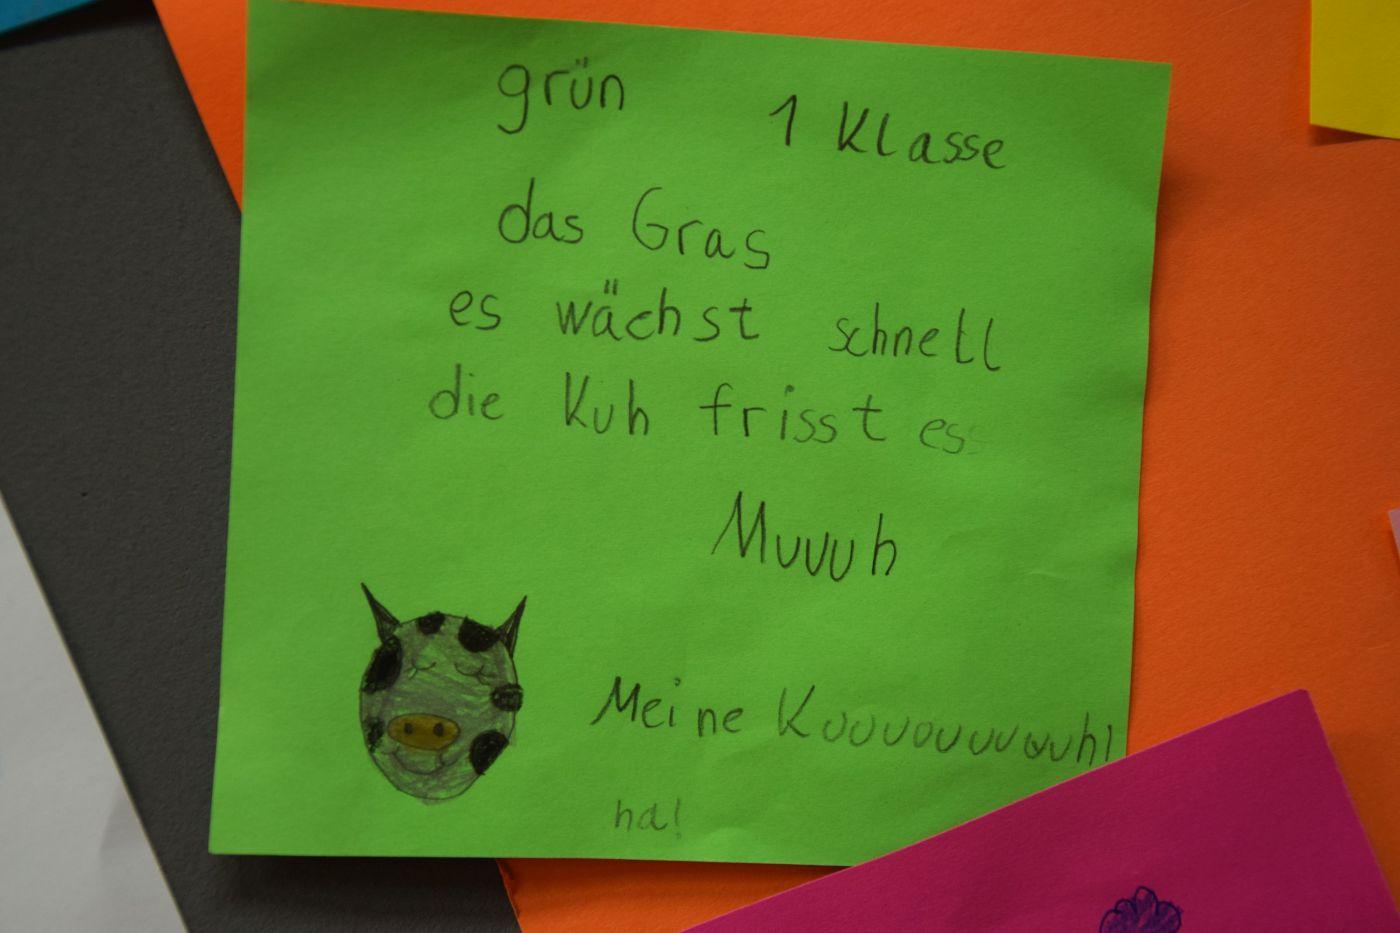 grün 1 Klasse
das Gras
es wächst schnell
die Kuh frisst es
Muuuh
Meine Kuuuuuuuuuh!
ha!